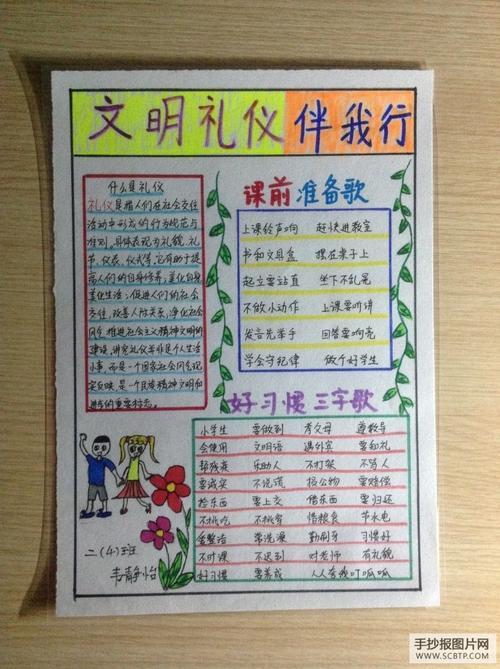 文明礼仪伴我行
什么是礼仪
礼仪是指人们在社会交往
活动中形成的行为规范与
准则。具体表现为礼貌、礼
节、仪表、仪式等。它有助于提
高人们的自身修养，美化自身
美化生活；促进人们的社会
交往，改善人际关系；净化社会
风气，推进社会主义精神文明的
建设。讲究礼仪并非是个人生活
小事，而是一个国家社会风气现
实反映，是一个民族精神文明和
进步的重要标志。
课前准备歌
上课铃声响 赶快进教室
书和文具盒 摆在桌子上
起立要站直 坐下不乱晃
不做小动作 上课要听讲
发言先举手 回答要响亮
学会守纪律 做个好学生
好习惯三字歌
小学生 要做到 孝父母 遵教导
会使用 文明语 遇外宾 要有礼
帮残疾 乐助人 不打架 不骂人
要诚实 不说谎 损公物 要赔偿
捡东西 要上交 借东西 要归还
不挑吃 不挑穿 惜粮食 节水电
会整洁 常洗澡 勤刷牙 习惯好
不旷课 不迟到 对老师 有礼貌
好习惯 要养成 人人夸我顶呱呱
二(4)班
手抄报图片网
WWW.SCBTP.COM